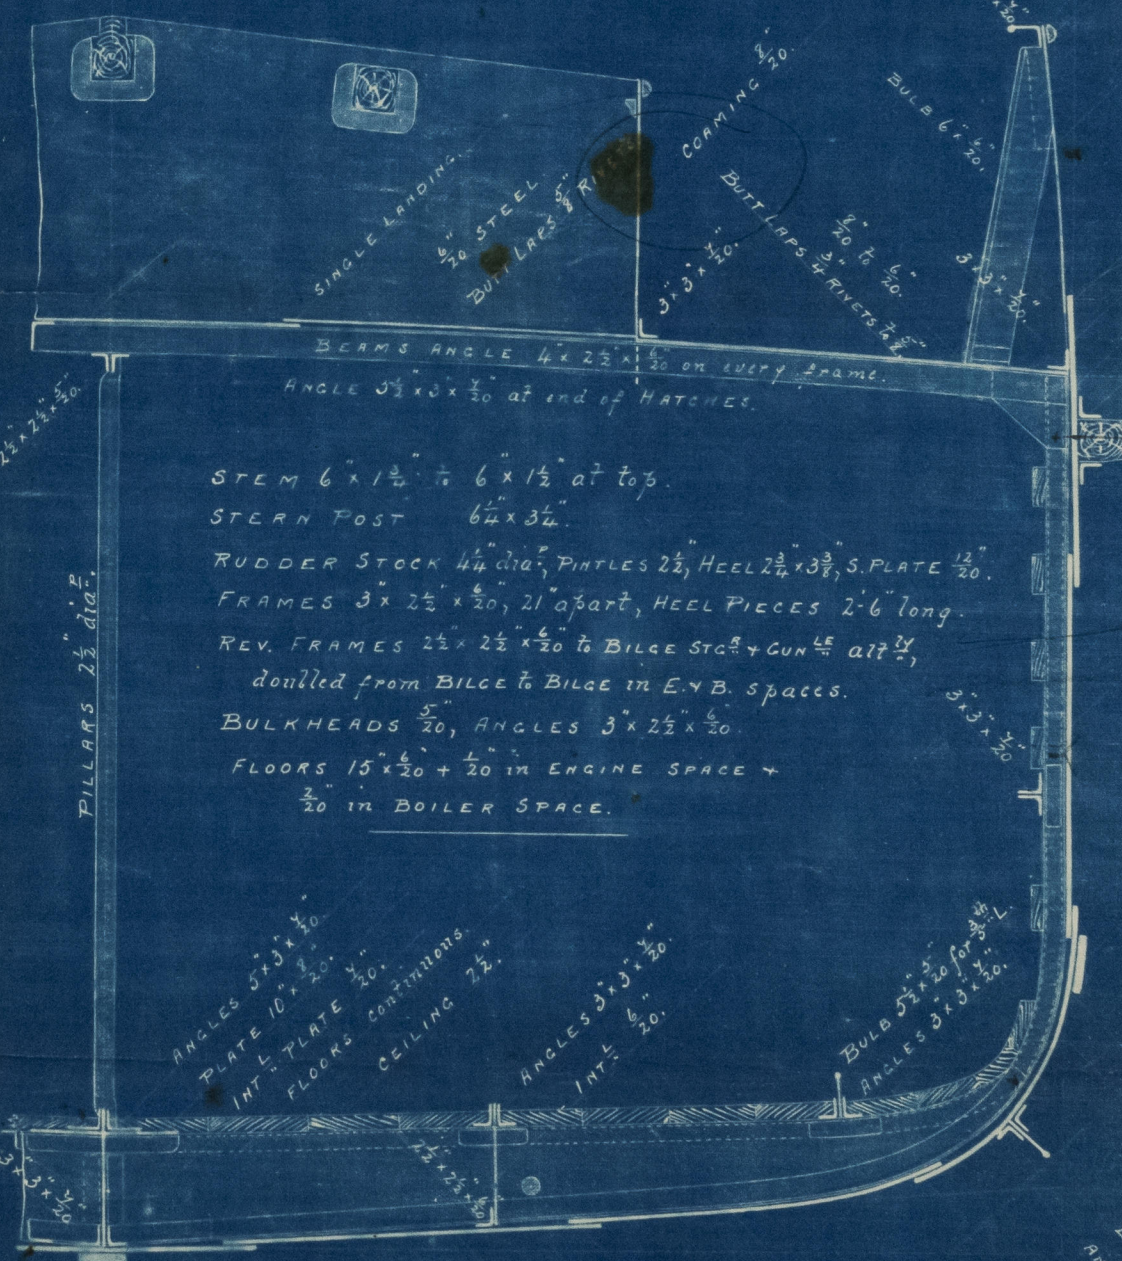 COAMING 8/20".
BULB 6" × 6/20".
SINGLE LANDING.
6/20" STEEL.
BUTT LAPS 5/8" RIVETS
3" × 3" × 7/20".
BUTT LAPS 3/4" RIVETS
8/20" to 6/20".
BEAMS ANGLE 4" × 2 1/2" × 6/20" on every frame.
ANGLE 5 1/2" × 3" × 7/20" at end of HATCHES.
2 1/2" × 2 1/2" × 5/20".
STEM 6" × 1 3/4" to 6" × 1 1/2" at top.
STERN POST 6 1/4" × 3 1/4".
RUDDER STOCK 4 1/4" diaR, PINTLES 2 1/2", HEEL 2 3/4" × 3 3/8", S. PLATE 12/20".
FRAMES 3" × 2 1/2" × 6/20", 21" apart, HEEL PIECES 2'-6" long.
REV. FRAMES 2 1/2" × 2 1/2" × 6/20" to BILGE STGR + GUNLE altLY,
doubled from BILGE to BILGE in E. & B. spaces.
BULKHEADS 5/20", ANGLES 3" × 2 1/2" × 6/20".
FLOORS 15" × 6/20" + 1/20" in ENGINE SPACE +
2/20" in BOILER SPACE.
PILLARS 2 1/2" diaR.
3" × 3" × 7/20"
ANGLES 5" × 3" × 7/20"
PLATE 10" × 8/20".
INTL PLATE 7/20".
FLOORS continuous.
CEILING 2 1/2".
ANGLES 3" × 3" × 7/20".
INTL 6/20".
BULB 5 1/2" × 5/20" for 3/5th L.
ANGLES 3" × 3" × 7/20".